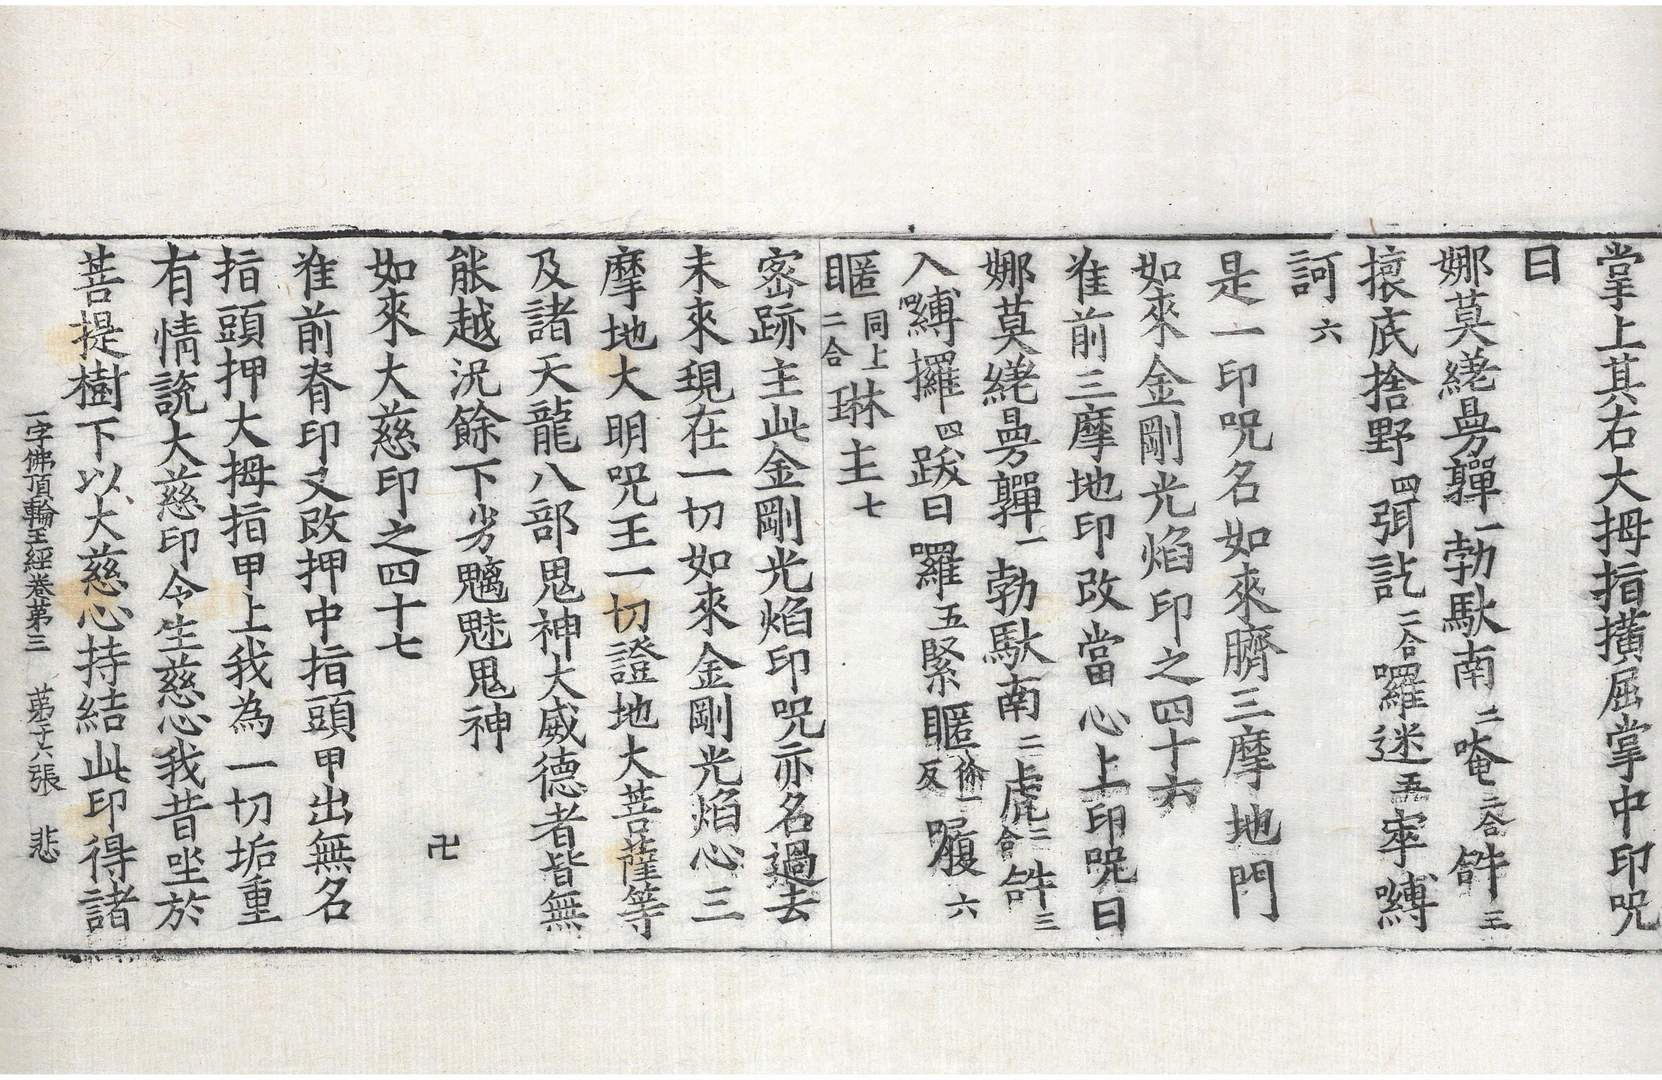 掌上其右大拇指撗屈掌中印呪
曰
娜莫繞曩亸一勃馱南二唵二合𤙖三
攘底捨野四弭訖二合囉迷五寧嚩
訶六
是一印呪名如來臍三摩地門
如來金剛光焰印之四十六
准前三摩地印改當心上印呪曰
娜莫繞曩亸一勃馱南二虎二合𤙖三
入嚩攞四跋曰囉五緊𭾨反一履六
𭾨同上二合琳主七
密跡主此金剛光焰印呪亦名過去
未來現在一切如來金剛光焰心三
摩地大明呪王一切證地大菩薩等
及諸天龍八部鬼神大威德者皆無
能越況餘下劣魑魅鬼神　卍
如來大慈印之四十七
准前脊印又改押中指頭甲出無名
指頭押大拇指甲上我為一切垢重
有情說大慈印令生慈心我昔坐於
菩提樹下以大慈心持結此印得諸
一字佛頂輪王經卷第三　第十六張　悲